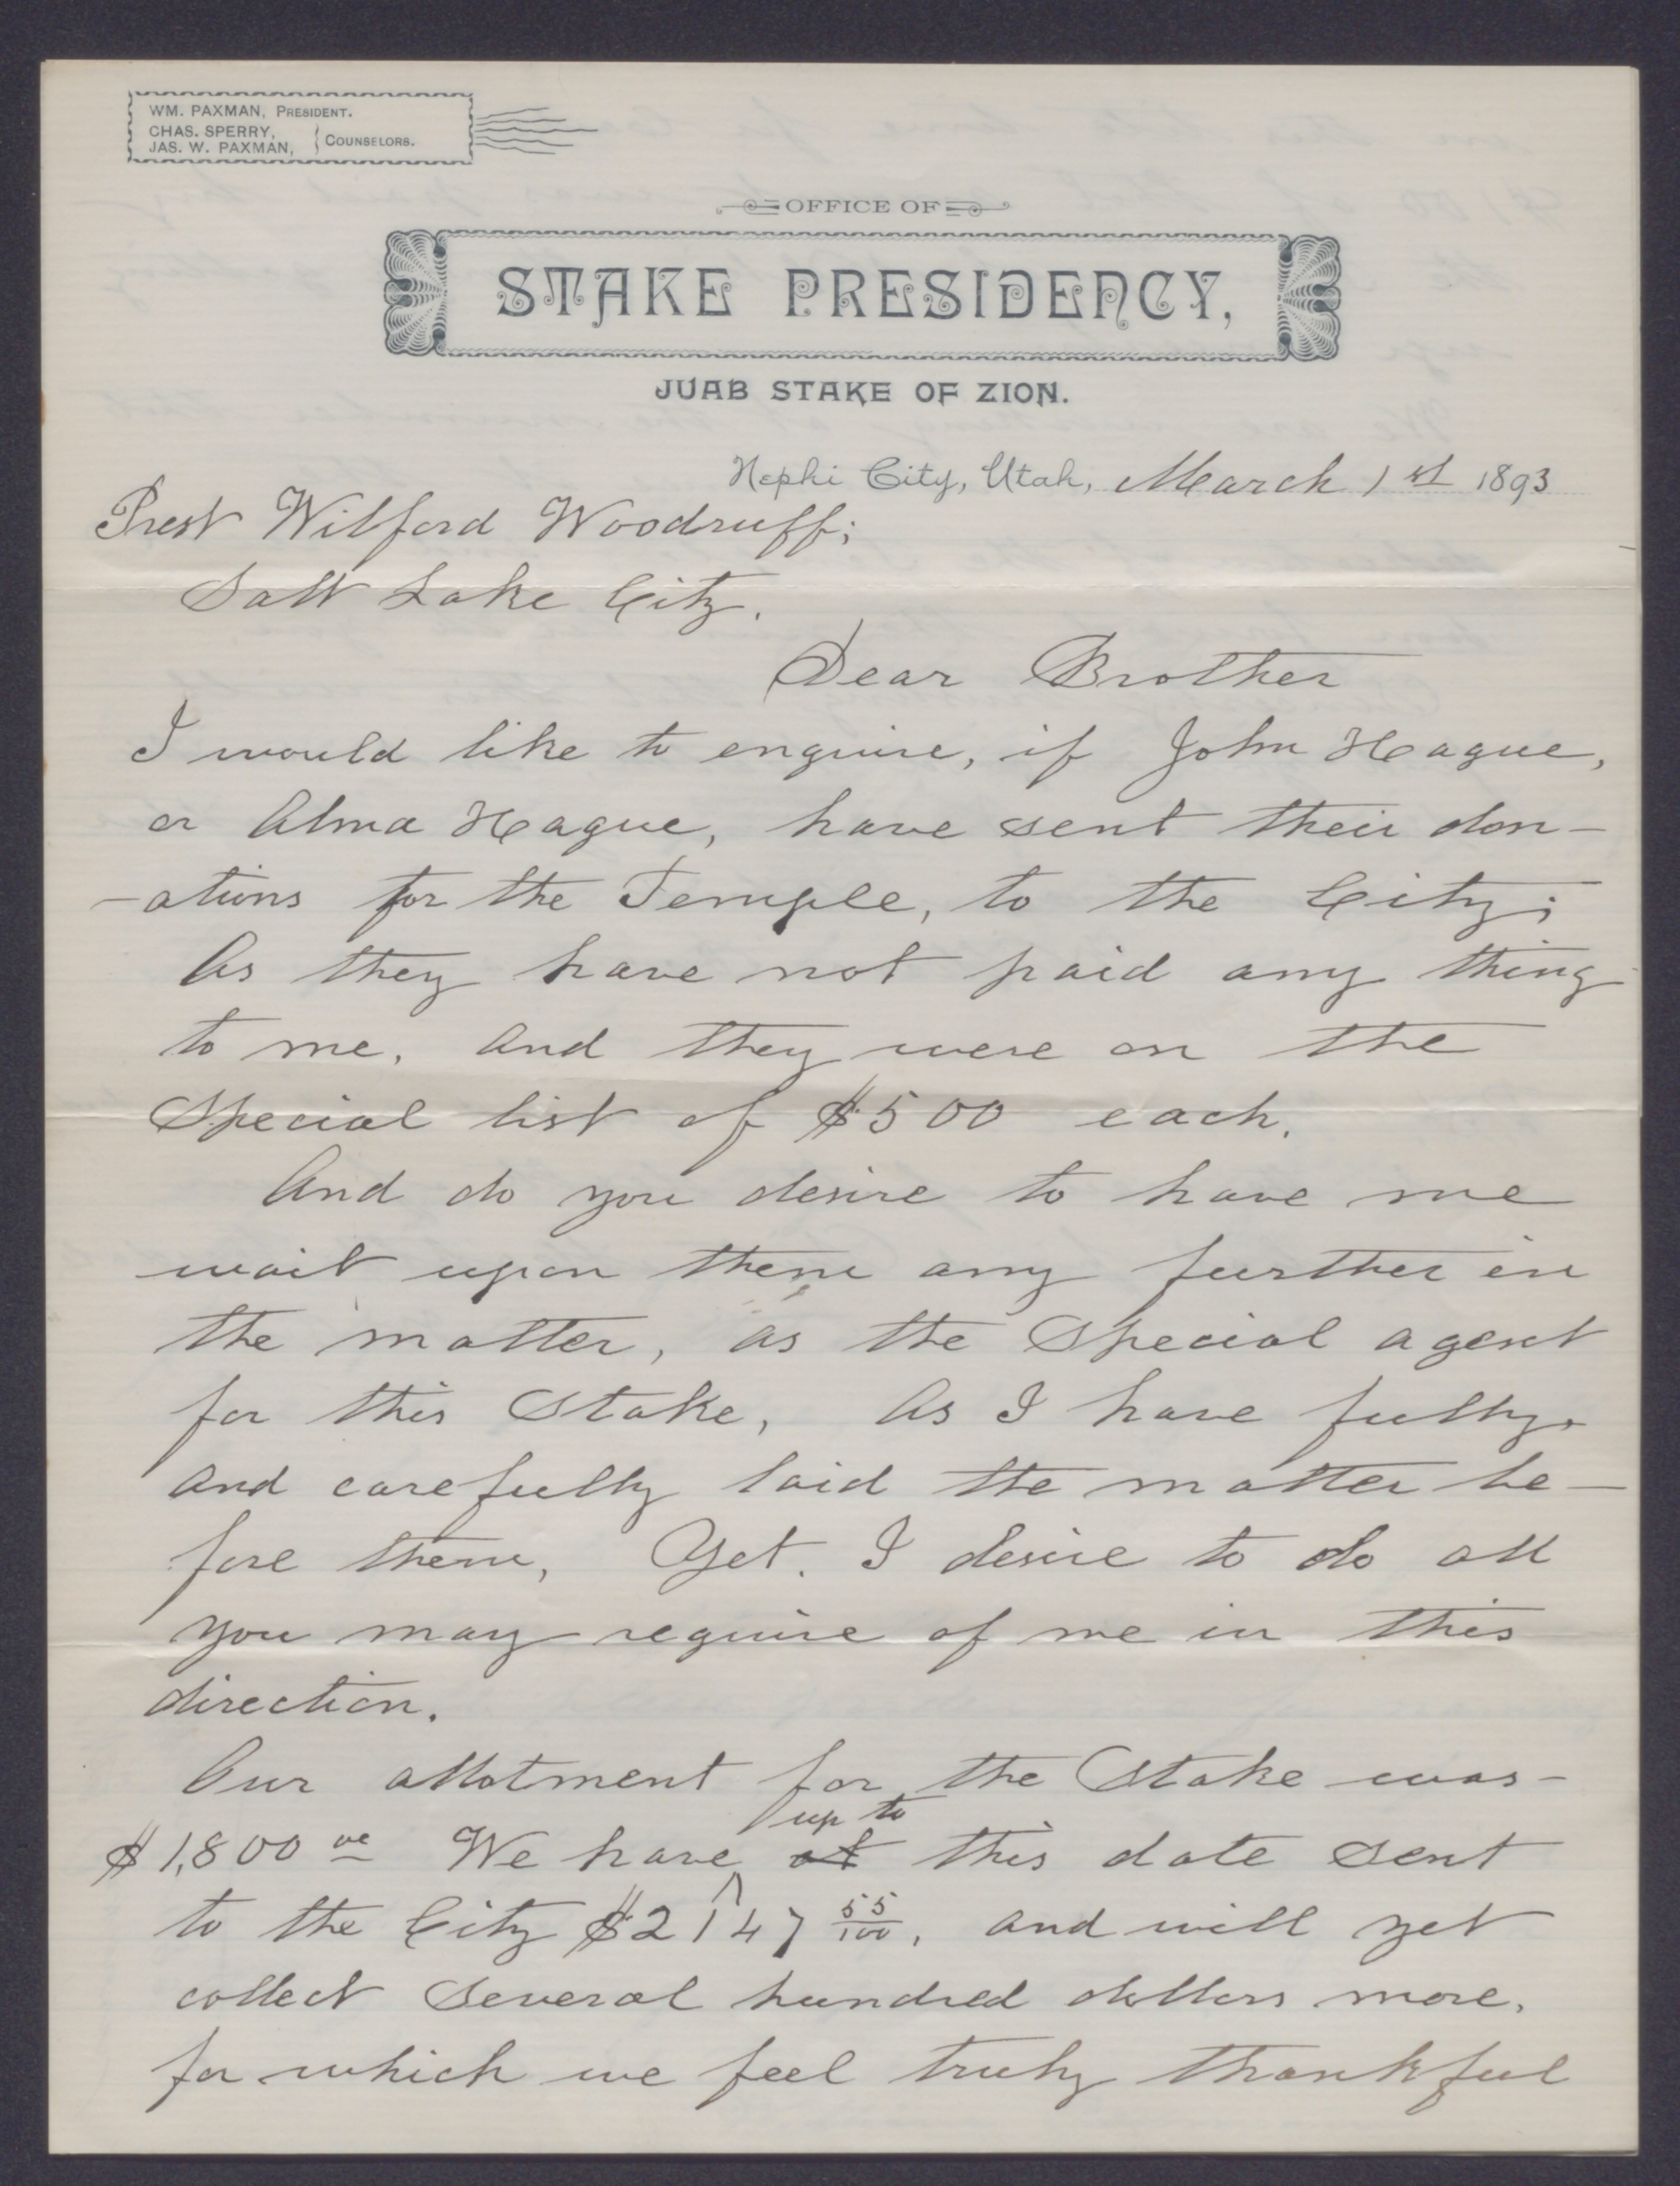 WM. PAXMAN, PRESIDENT.
CHAS. SPERRY,
JAS. W. PAXMAN, } COUNSELORS.
OFFICE OF
STAKE PRESIDENCY,
JUAB STAKE OF ZION.
Nephi City, Utah, March 1st 1893
Prest Wilford Woodruff;
Salt Lake City.
Dear Brother
I would like to enquire, if John Hague,
or Alma Hague, have sent their don-
-ations for the Temple, to the City;
As they have not paid any thing
to me, and they were on the
Special list of $500 each.
And do you desire to have me
wait upon them any further in
the matter, as the Special agent
for this Stake, As I have fully
and carefully laid the matter be-
fore them, Yet. I desire to do all
you may require of me in this
direction.
Our allotment for the Stake was-
$1,800 oo We have ^up to at this date sent
to the City $2147 55/100, and will yet
collect Several hundred dollars more,
for which we feel truly thankful